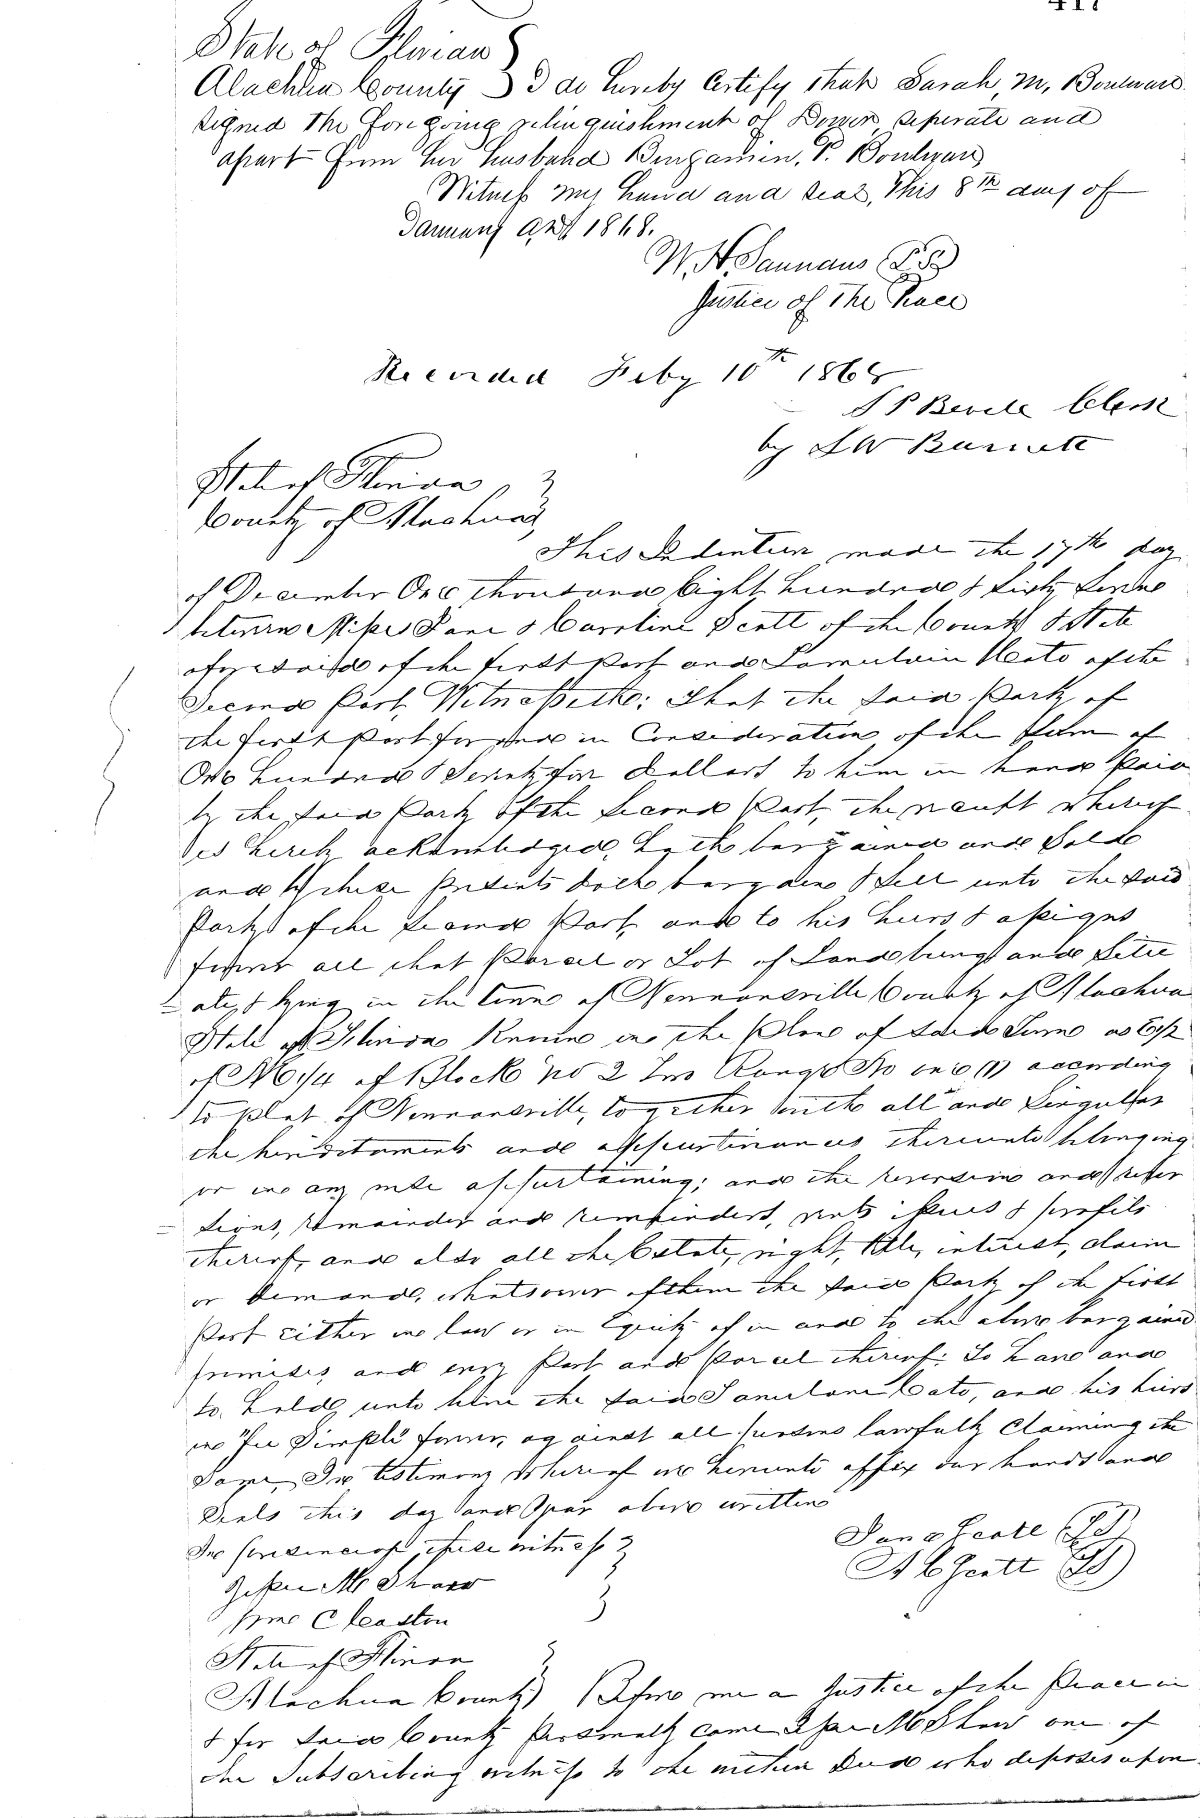 417
State of Florida
Alachua County I do hereby Certify that Sarah M. Boulware
signed the foregoing relinquishment of Dower seperate and
apart from her husband Benjamin. P. Boulware
Witness my hand and seal, this 8th day of
January AD 1868.
W. H. (L.S.)
Justice of the Peace
Recorded Feby 10th 1868
S P Bevill Clerk
by S W Burnett
State of Florida
County of Alachua
This Indenture made the 17th day
of December One thousand Eight hundred & Sixty Seven
between Misses Jane & Caroline Scott of the County & State
aforesaid of the first Part and Cato of the
Second Part, Witnesseth: That the said Party of
the first Part for and in Consideration of the sum of
One hundred & Seventy five dollars to him in hand Paid
by the said Party of the Second Part, the receipt whereof
is hereby acknowledged, hath bargained and Sold
and by these Presents doth bargain & Sell unto the said
Party of the Second Part, and to his heirs & assigns
forever all that Parcel or Lot of Land being and Situ
ated & lying in the town of Newnansville County of Alachua
State of Florida Known in the Plan of said Town as E 1/2
of NE 1/4 of Block No 2 Two Range No one (1) according
to plat of Newnansville, together with all and Singular
the hereditaments and appurtenances thereunto belonging
or in any wise appertaining; and the reversion and rever
sions, remainder and remainders, rents issues & profits
thereof, and also all the Estate, right, title, interest, claim
or demand, whatsoever of them the said Party of the first
Part either in law or in Equity of in and to the above bargained
premises, and every Part and Parcel thereof: To have and
to hold, unto him the said Cato, and his heirs
in Fee Simple forever, against all persons lawfully Claiming the
Same, In testimony whereof we hereunto affix our hands and
Seals this day and year above written
In presence of these witness
Jane Scott (LS)
A C Scott (LS)
Jesse M Shaw
C Easton
State of Florida
Alachua County) Before me a Justice of the Peace in
& for said County Personally came Jesse M Shaw one of
the Subscribing witness to the within Deed who deposes upon